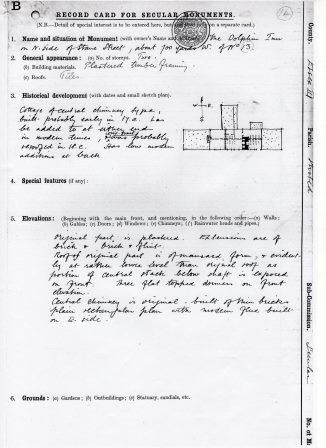 B
RECORD CARD FOR SECULAR MONUMENTS.
(N.B.—Detail of special interest is to be entered here, but on a separate card.)
1. Name and situation of Monument (with owner's Name and The Dolphin Inn
on N. side of Stane Street, about 700 yards W. of No 13.
2. General appearance: (a) No. of storeys. Two.
(b) Building materials. Plastered timber framing.
(c) Roofs. Tiles
3. Historical development (with dates and small sketch plan).
Cottage of central chimney type,
built probably early in 17.c. has
been added to at either end
in modern times, probably
in 18.c. Has low modern
additions at back
4. Special features (if any):
5. Elevations: (Beginning with the main front, and mentioning, in the following order:—(a) Walls;
(b) Gables; (c) Doors; (d) Windows; (e) Chimneys; (f) Rainwater heads and pipes.)
Original part is plastered. Extensions are of
brick & brick & flint.
Roof of original part is of mansard form, & evident-
ly at rather lower level than original roof as
portion of central stack below shaft is exposed
on front. Three flat topped dormers on front
elevation.
Central chimney is original. built of thin bricks
plain rectangular plan with modern flue built
on E. side.
6. Grounds: (a) Gardens; (b) Outbuildings; (c) Statuary, sundials, etc.
County.
Parish.
Sub-Commission.
Secular
No. of M